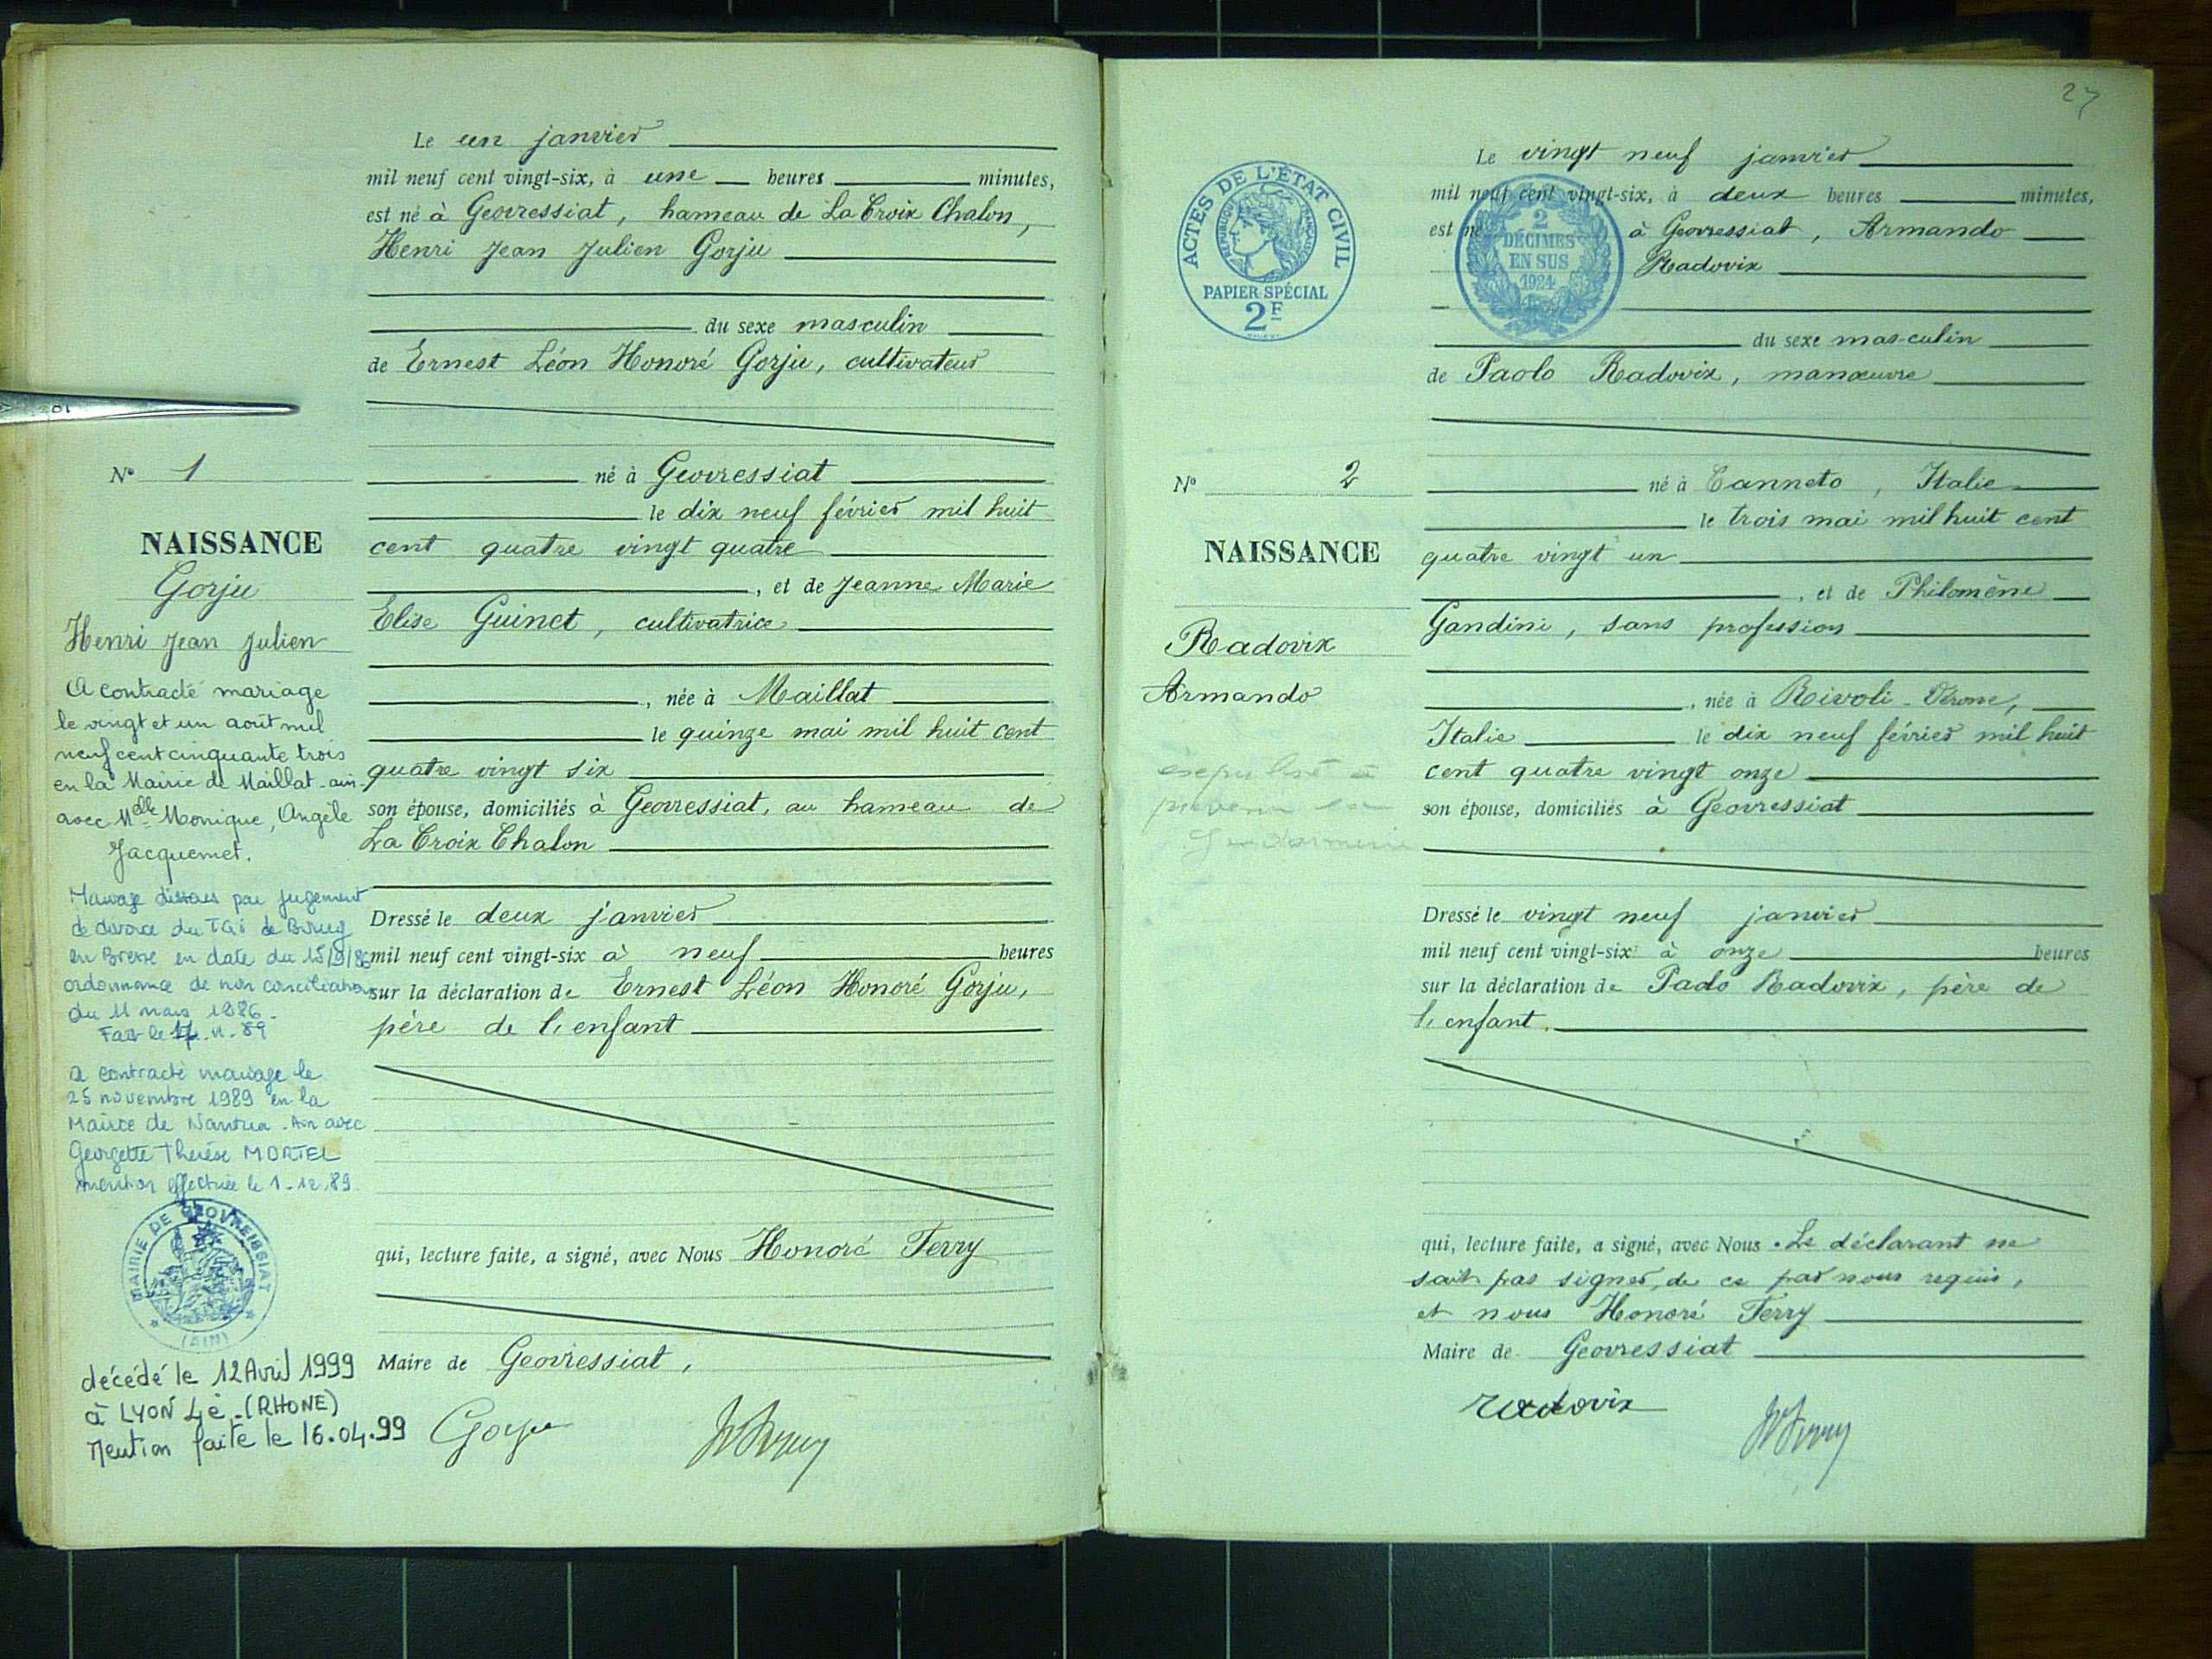 Le un janvier
mil neuf cent vingt-six, à une heures minutes,
est né à Geovressiat, hameau de La Croix Chalon,
Henri Jean Julien Gorju
du sexe masculin
de Ernest Léon Honoré Gorju, cultivateur
né à Geovressiat
le dix neuf février mil huit
cent quatre vingt quatre
, et de Jeanne Marie
Elise Guinet, cultivatrice
, née à Maillat
le quinze mai mil huit cent
quatre vingt six
son épouse, domiciliés à Geovressiat, au hameau de
La Croix Chalon
Dressé le deux janvier
mil neuf cent vingt-six à neuf heures
sur la déclaration de Ernest Léon Honoré Gorju,
père de l'enfant
qui, lecture faite, a signé, avec Nous Honoré Ferry
Maire de Geovressiat,
Gorju
HFerry
N° 1
NAISSANCE
Gorju
Henri Jean Julien
A contracté mariage
le vingt et un août mil
neuf cent cinquante trois
en la Mairie de Maillat-ain
avec Mlle Monique, Angèle
Jacquemet.
Mariage dissous par jugement
de divorce du TGi de Bourg
en Bresse en date du 15/9/86
ordonnance de non conciliation
du 11 mars 1986.
Fait le 17.11.89
a contracté mariage le
25 novembre 1989 en la
Mairie de Nantua - Ain avec
Georgette Thérèse MORTEL
mention effectuée le 1-12.89.
MAIRIE DE GEOVREISSIAT
(AIN)
décédé le 12 Avril 1999
à LYON 4è. (RHONE)
Mention faite le 16.04.99
27
ACTES DE L'ÉTAT CIVIL
RÉPUBLIQUE FRANÇAISE
PAPIER SPÉCIAL
2F
2
DÉCIMES
EN SUS
1924
Le vingt neuf janvier
mil neuf cent vingt-six, à deux heures minutes,
est né à Geovressiat, Armando
Radovix
du sexe masculin
de Paolo Radovix, manœuvre
né à Canneto, Italie
le trois mai mil huit cent
quatre vingt un
, et de Philomène
Gandini, sans profession
, née à Rivoli-Vérone,
Italie le dix neuf février mil huit
cent quatre vingt onze
son épouse, domiciliés à Geovressiat
Dressé le vingt neuf janvier
mil neuf cent vingt-six à onze heures
sur la déclaration de Paolo Radovix, père de
l'enfant.
qui, lecture faite, a signé, avec Nous. Le déclarant ne
sait pas signer, de ce par nous requis,
et nous Honoré Ferry
Maire de Geovressiat
Radovix
HFerry
N° 2
NAISSANCE
Radovix
Armando